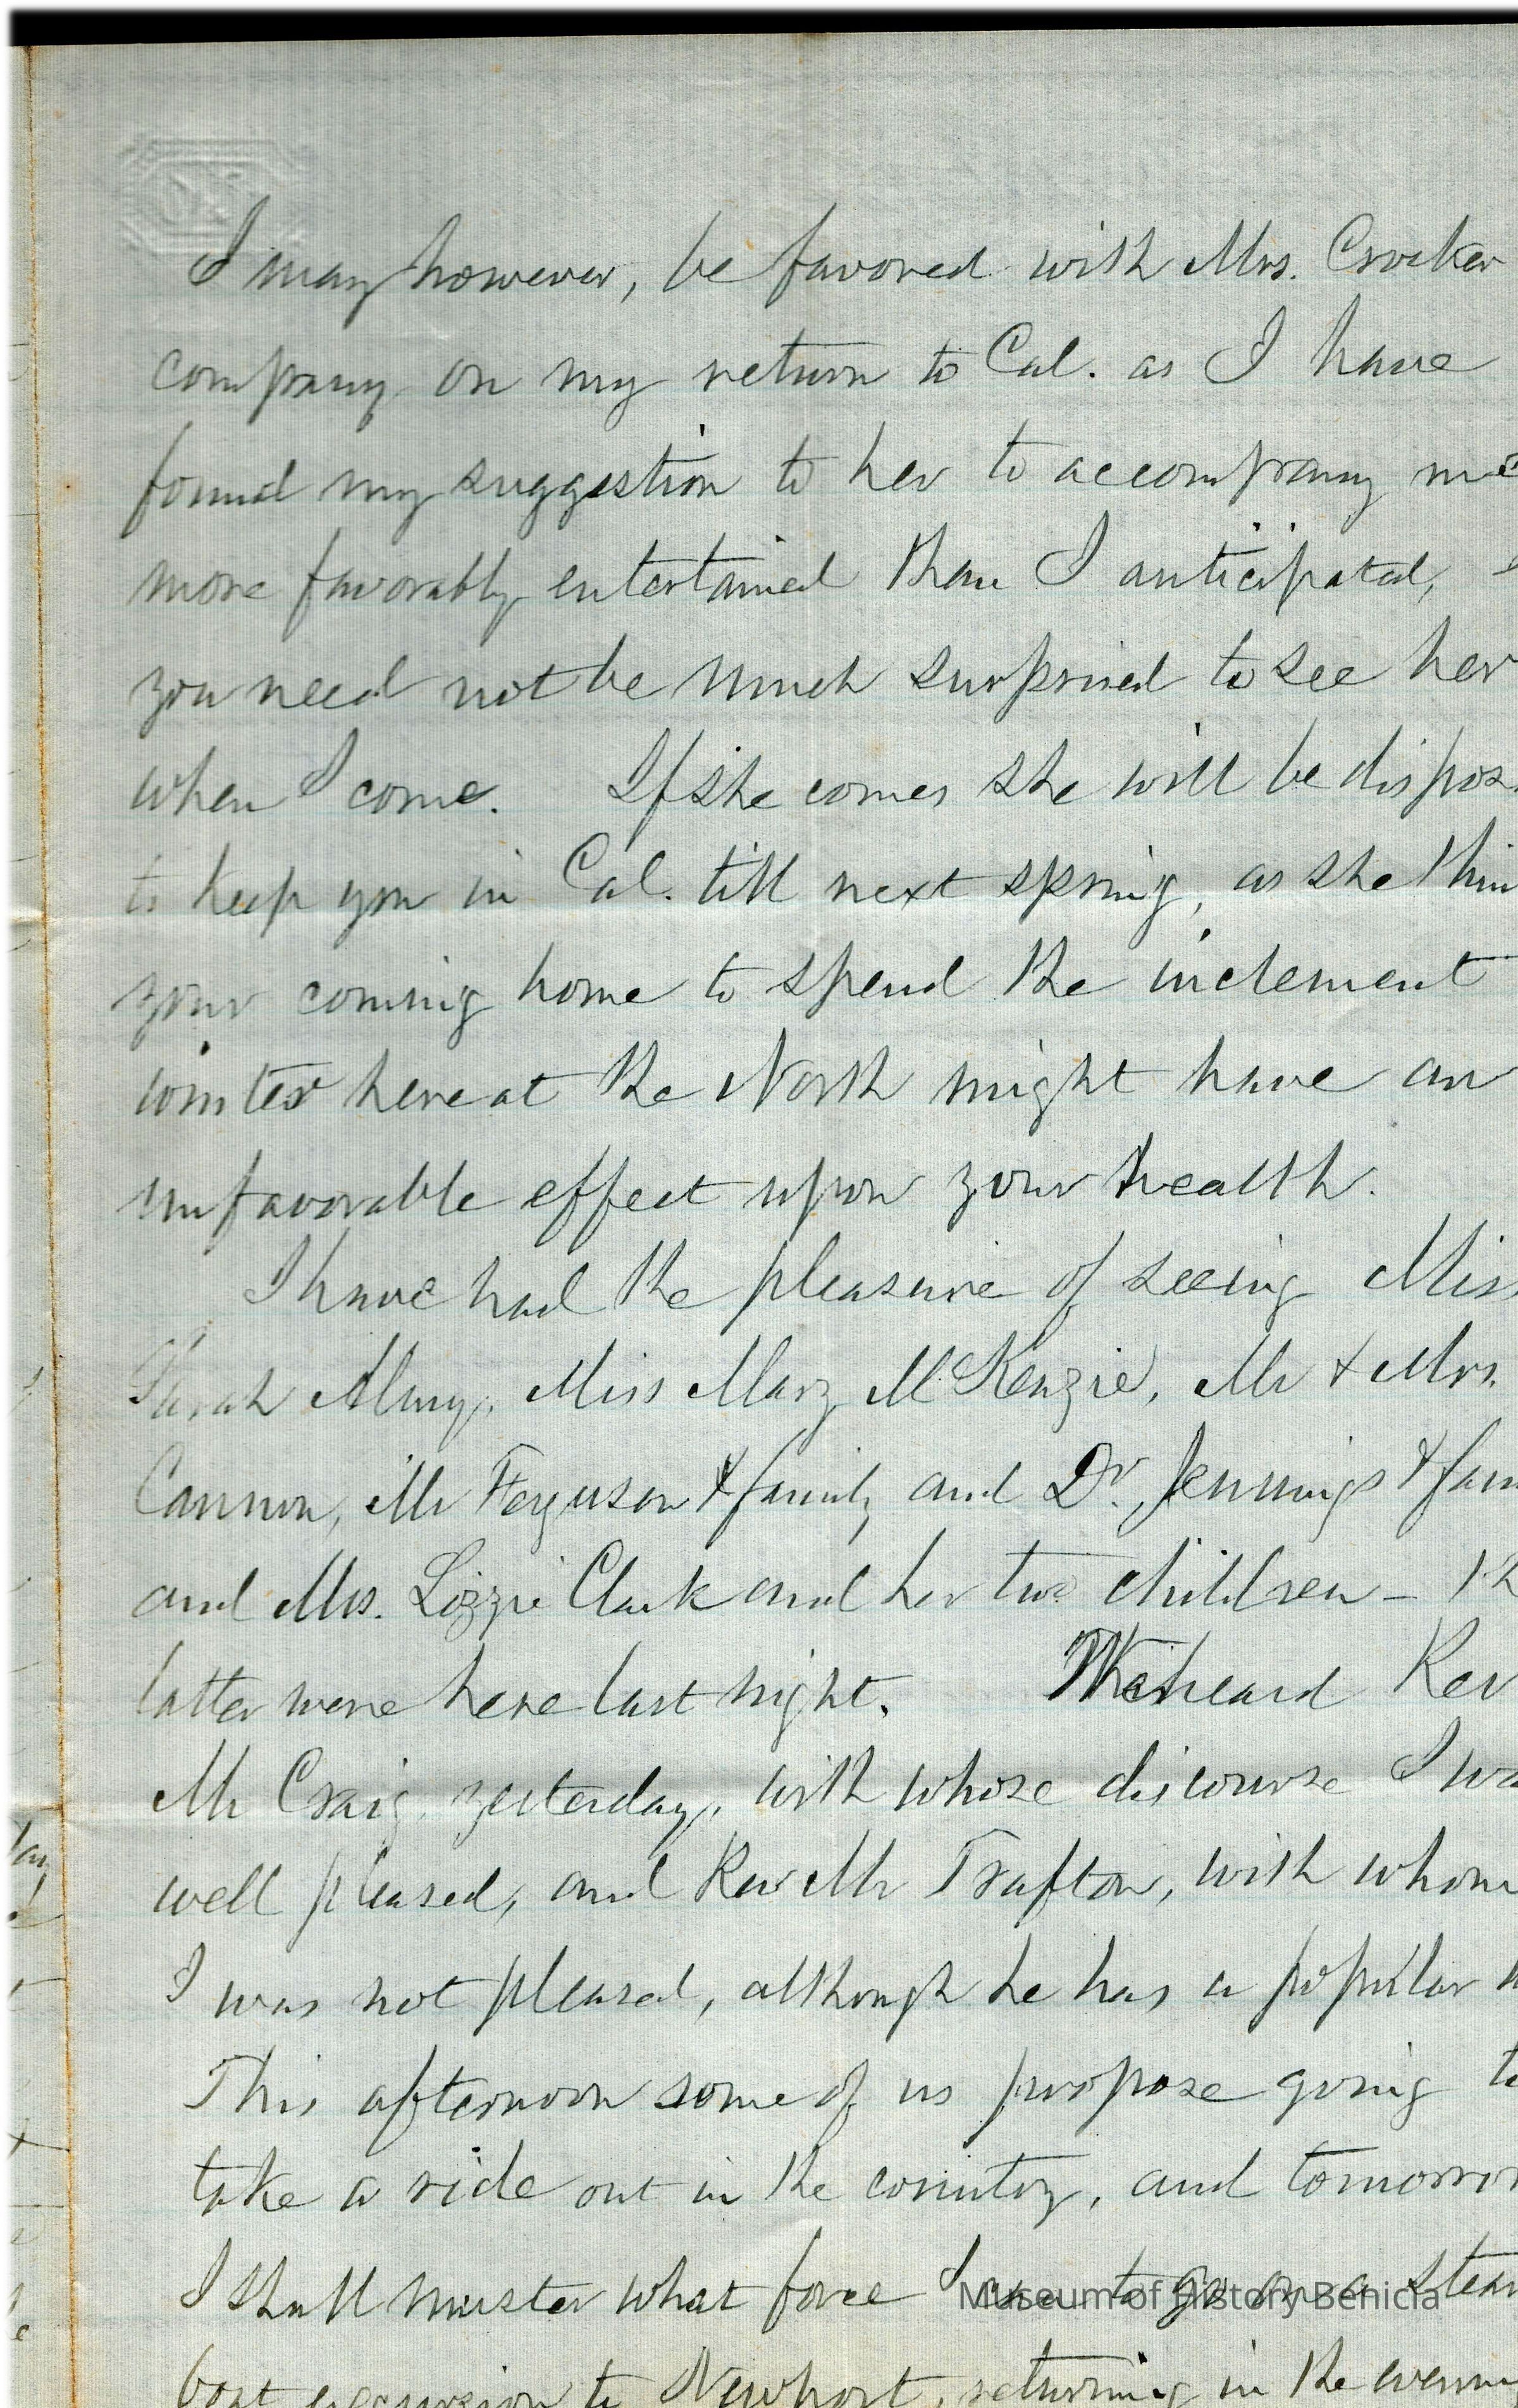 I may however, be favored with Mrs. Crocker
company on my return to Cal. as I have
found my suggestion to her to accompany me
more favorably entertained than I anticipated,
you need not be much surprised to see her
when I come. If she comes she will be dispos
to keep you in Cal. till next spring, as she thin
your coming home to spend the inclement
winter here at the North might have an
unfavorable effect upon your health.
I have had the pleasure of seeing Miss
Sarah Almy, Miss Mary McKenzie, Mr & Mrs.
Cannon, Mr Ferguson & family and Dr. Jennings & fam
and Mrs. Lizzie Clark and her two children – th
latter were here last night. heard Rev
Mr Craig yesterday, with whose discourse I wa
well pleased, and Rev Mr Trafton, with whom
I was not pleased, although he has a popular
This afternoon some of us propose going to
take a ride out in the country, and tomorrow
I shall muster what force I can to go on a steam
boat excursion to Newport, returning in the evenin
Museum of History Benicia